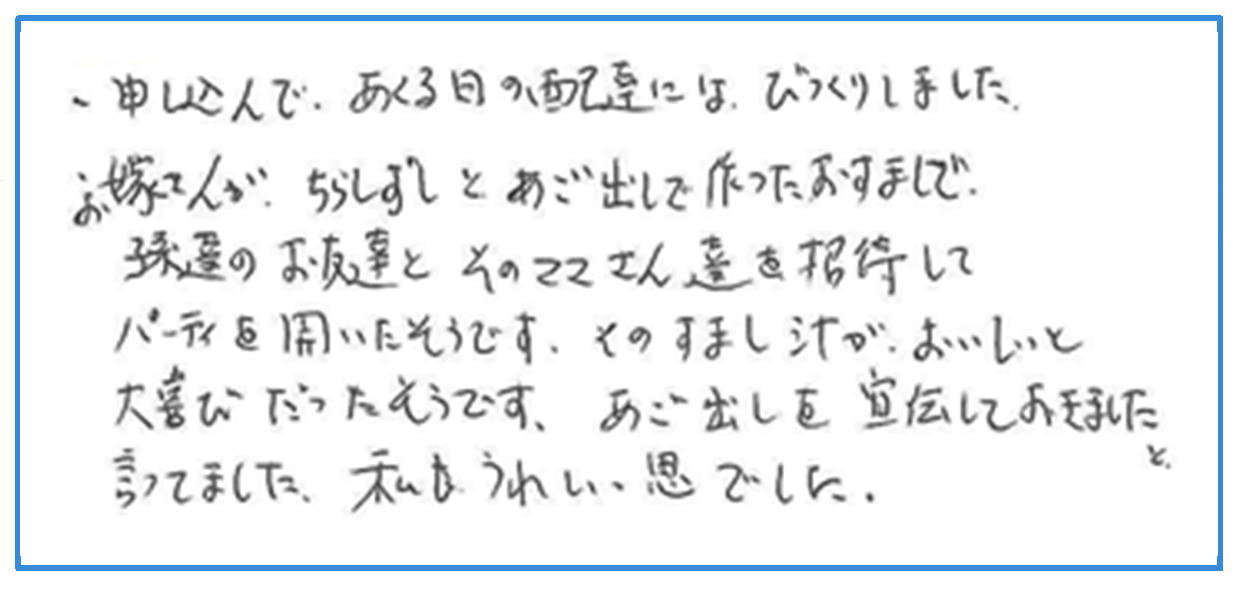 、申し込んで、あくる日の配達には、びっくりしました。
お嫁さんが、ちらしずしとあご出しで作ったおすましで、
孫達のお友達とそのママさん達を招待して
パーティを開いたそうです、そのすまし汁が、おいしいと
大喜びだったそうです、あご出しを宣伝しておきましたと、
言ってました、私もうれしい思でした。